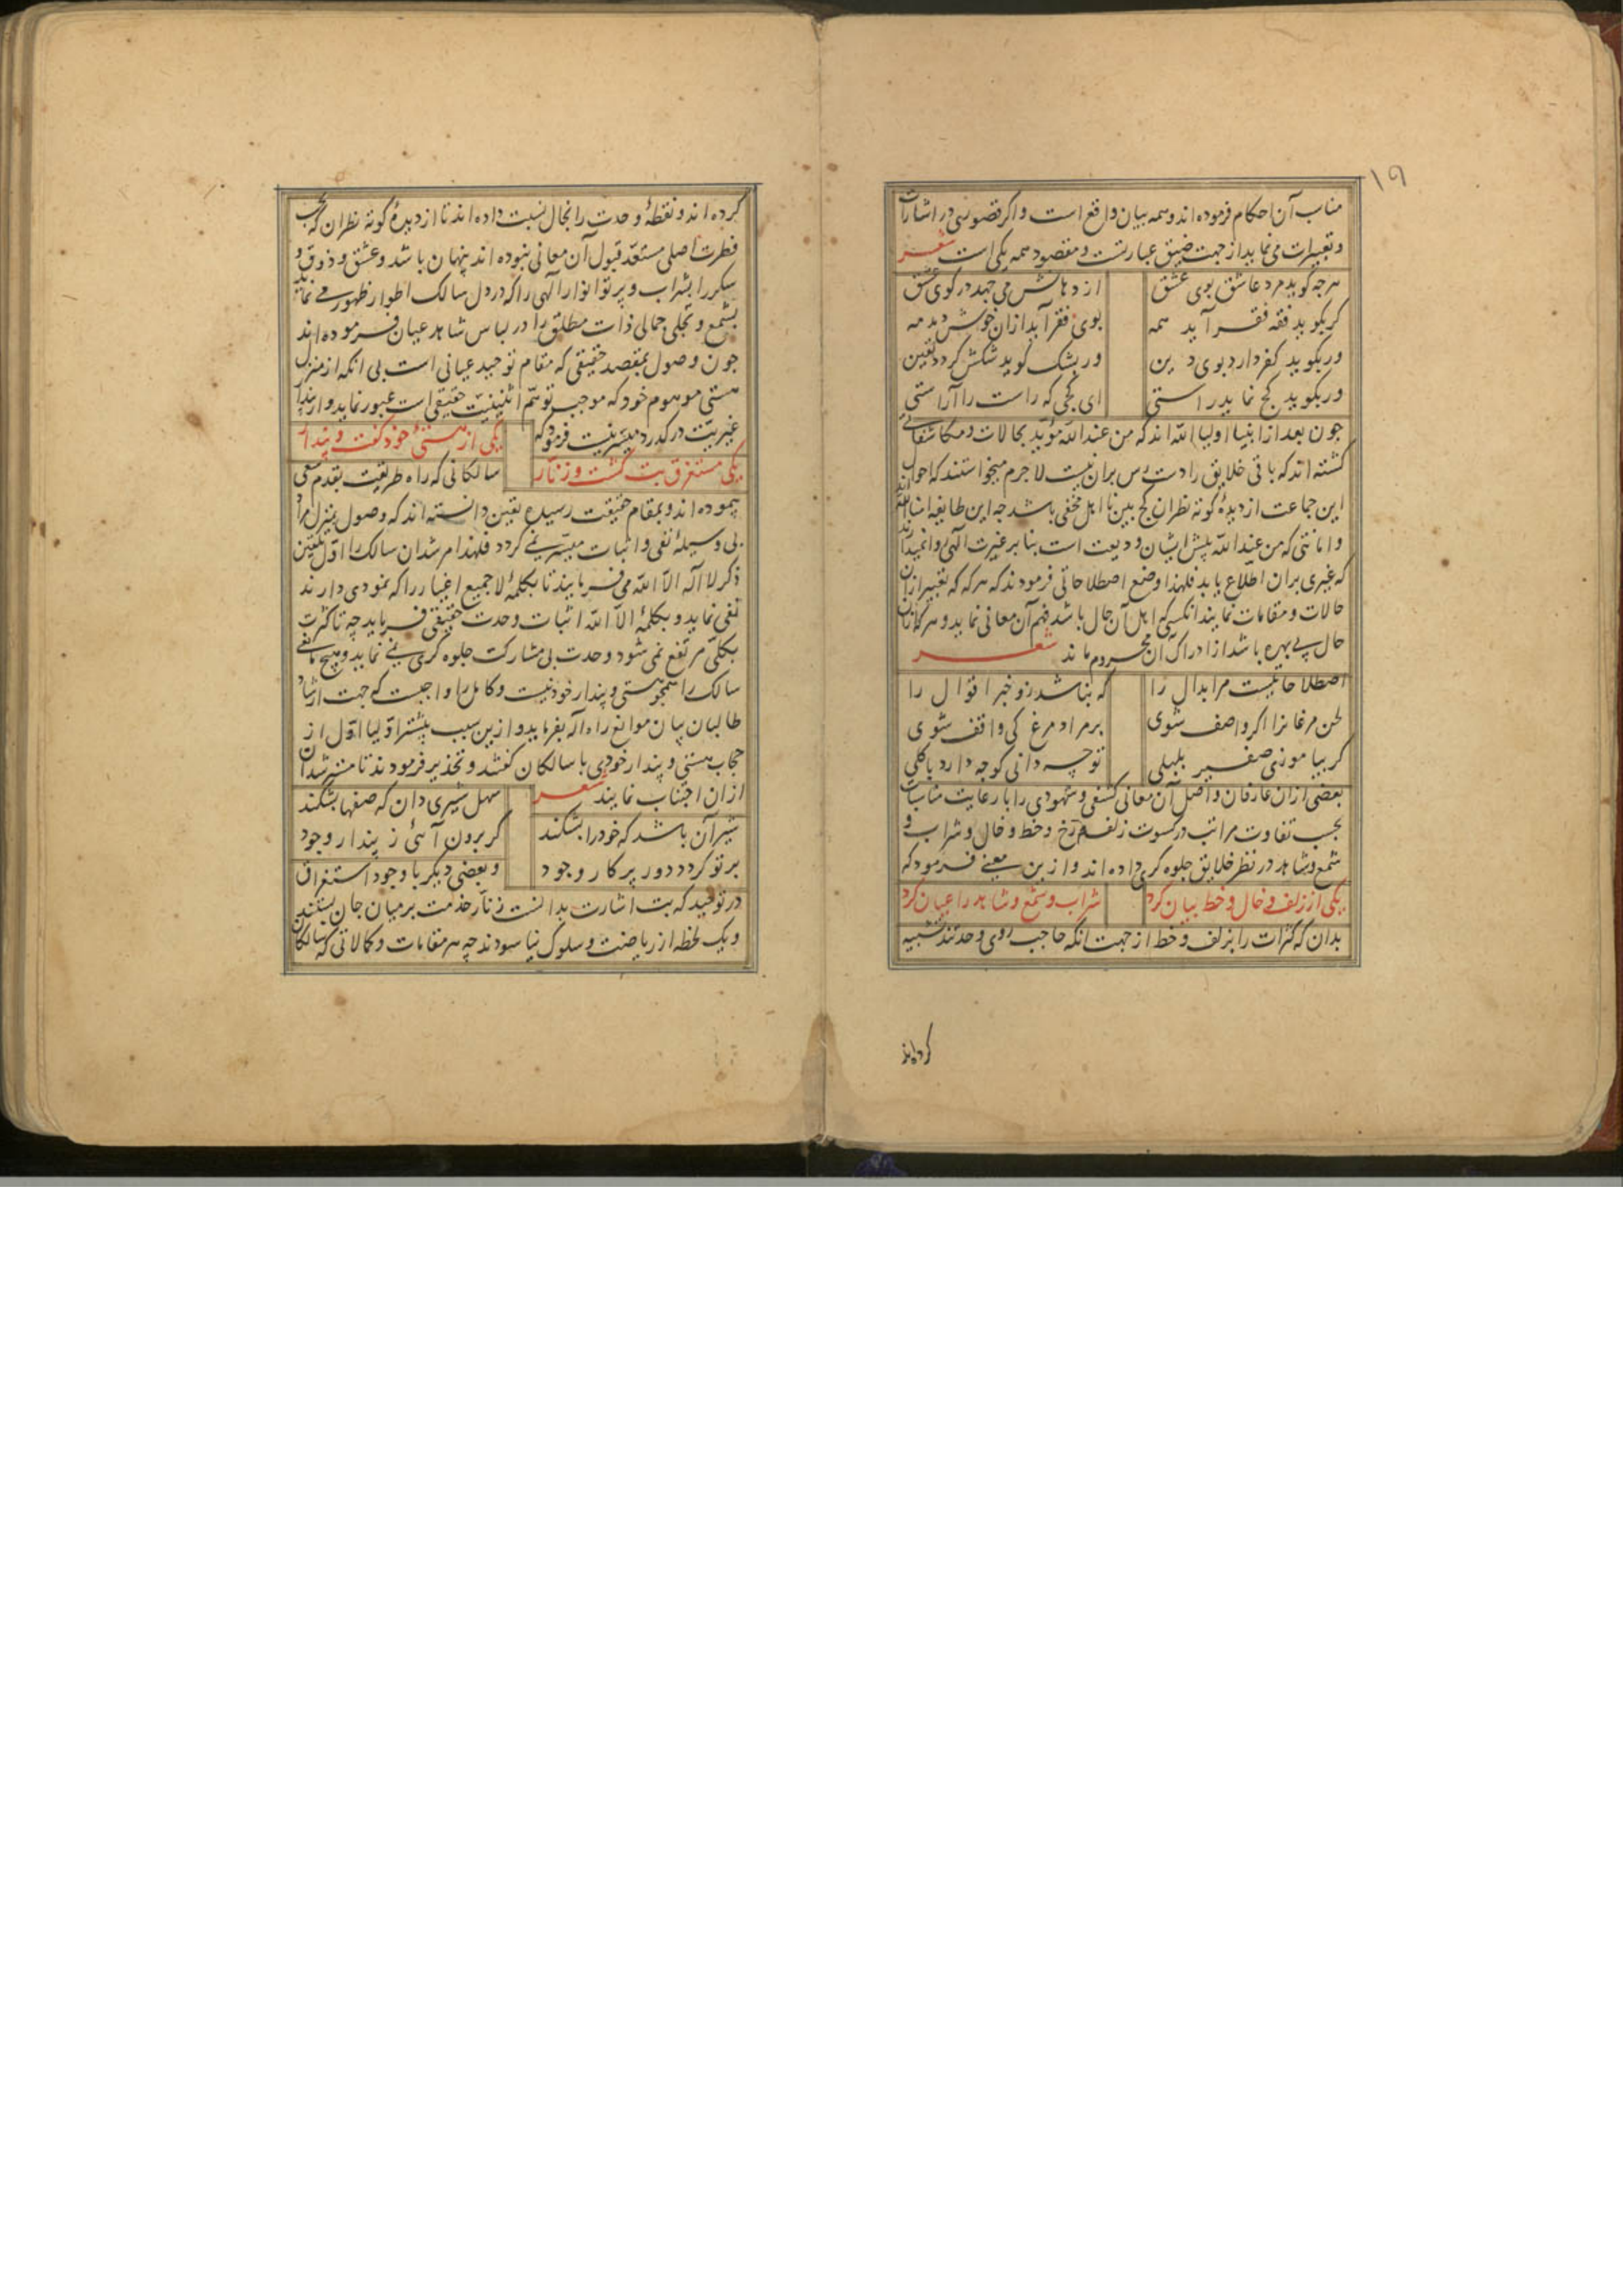 ۱۹
مناسب آن احکام فرموده اند و همه بیان واقع است و اکر قصوری در اشارات
و تعبیرات می نماید از جهت ضیق عبارتست و مقصود همه یکی است شعر
هرجه کوید مرد عاشق بوی عشق از دهانش می جهد در کوی عشق
کر بکوید فقه فقر آید همه بوی فقر آید ازان خوش دمدمه
ور بکوید کفر دارد بوی دین ور بشک کوید شکش کردد یقین
ور بکوید کج نماید راستی ای کجی که راست را آراستی
جون بعد از انبیا اولیاء الله اند که من عند الله مؤید بحالات و مکاشفاتی
کشته اند که باقی خلایق را دست رس بران نیست لاجرم میخواستند که احوال
این جماعت از دیدۀ کوته نظران کج بین نا اهل مخفی باشد جه این طایفه امناء الله اند
و امانتی که من عند الله پیش ایشان ودیعت است بنا بر غیرت الهی روا نمیدارند
که غیری بران اطلاع یابد فلهذا وضع اصطلاحاتی فرمودند که هرکه که تعبیر ازان
حالات و مقامات نمایند انکسی که اهل آن حال باشد فهم آن معانی نماید و هرکه ازان
حال بی بهره باشد از ادراک آن محروم ماند شعر
اصطلاحاتیست مر ابدال را که نباشد زو خبر اقوال را
لحن مرغانرا اکر واصف شوی بر مراد مرغ کی واقف شوی
کر بیاموزی صفیر بلبلی تو چه دانی کو جه دارد با کلی
بعضی ازان عارفان واصل آن معانی کشفی و شهودی را با رعایت مناسبات
بحسب تفاوت مراتب در کسوت زلف و رخ و خط و خال و شراب و
شمع و شاهد در نظر خلایق جلوه کری داده اند و از این معنی فرمود که
یکی از زلف و خال و خط بیان کرد شراب و شمع و شاهد را عیان کرد
بدان که کثرات را بزلف و خط از جهت انکه حاجب روی وحدتند تشبیه
کرده اند
کرده اند و نقطۀ وحدت را بخال نسبت داده اند تا از دیدۀ کوته نظران که بحسب
فطرت اصلی مستعد قبول آن معانی نبوده اند پنهان باشد و عشق و ذوق و
سکر را بشراب و پرتو انوار الهی را که در دل سالک اطوار ظهور می نماید
بشمع و تجلی جمالی ذات مطلق را در لباس شاهد عیان فرموده اند
جون وصول بمقصد حقیقی که مقام توحید عیانی است بی انکه از منزل
هستی موهوم خود که موجب توهم اثنینیت حقیقی است عبور نماید و از پندار
غیریت در کذرد میسر نیست فرمود که یکی از هستئ خود کفت و پندار
یکی مستغرق بت کشت و زنار سالکانی که راه طریقت بقدم سعی
پیموده اند و بمقام حقیقت رسیده یقین دانسته اند که وصول بمنزل مراد
بی وسیلۀ نفی و اثبات میسر نمی کردد فلهذا مرشدان سالک را اول تلقین
ذکر لا اله الا الله می فرمایند تا بکلمۀ لا جمیع اغیار را که نمودی دارند
نفی نماید و بکلمۀ الا الله اثبات وحدت حقیقی فرماید چه تا کثرت
بکلی مرتفع نمی شود وحدت بی مشارکت جلوه کری نمی نماید و هیچ مانعی
سالک را همجو هستی و پندار خود نیست و کامل را واجبست که جهت ارشاد
طالبان بیان موانع راه اله بفرماید و ازین سبب پیشتر اولیا اول از
حجاب هستی و پندار خودی با سالکان کفتند و تحذیر فرمودند تا مسترشدان
ازان اجتناب نمایند شعر سهل شیری دان که صفها بشکند
شیر آن باشد که خود را بشکند کر برون آئی ز پندار وجود
بر تو کردد دور پرکار وجود و بعضی دیکر با وجود استغراق
در توحید که بت اشارت بدانست زنار خدمت بر میان جان بستند
و یک لحظه از ریاضت و سلوک نیاسودند چه هر مقامات و کمالاتی که سالکان